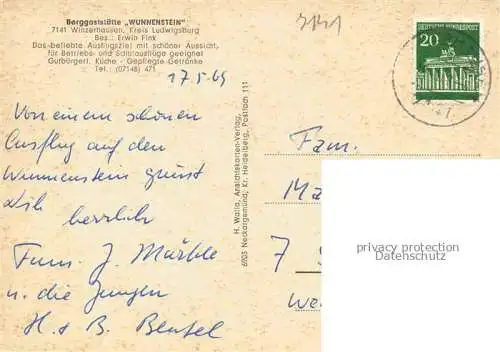 Berggaststätte „WUNNENSTEIN"
7141 Winzerhausen, Kreis Ludwigsburg
Bes.: Erwin Fink
Das beliebte Ausflugsziel mit schöner Aussicht,
für Betriebs- und Saalausflüge geeignet
Gutbürgerl. Küche - Gepflegte Getränke
Tel.: (07148) 471
17.5.69
Von einem schönen
Ausflug auf den
Wunnenstein grüsst
herzlich
Fam. J. Märkle
u. die Jungen
H. + B. Bentel
H. Walla, Ansichtskarten-Verlag,
6903 Neckargemünd, Kr. Heidelberg, Postfach 111
DEUTSCHE BUNDESPOST
20
Fam.
Ma
7
We
privacy protection
Datenschutz